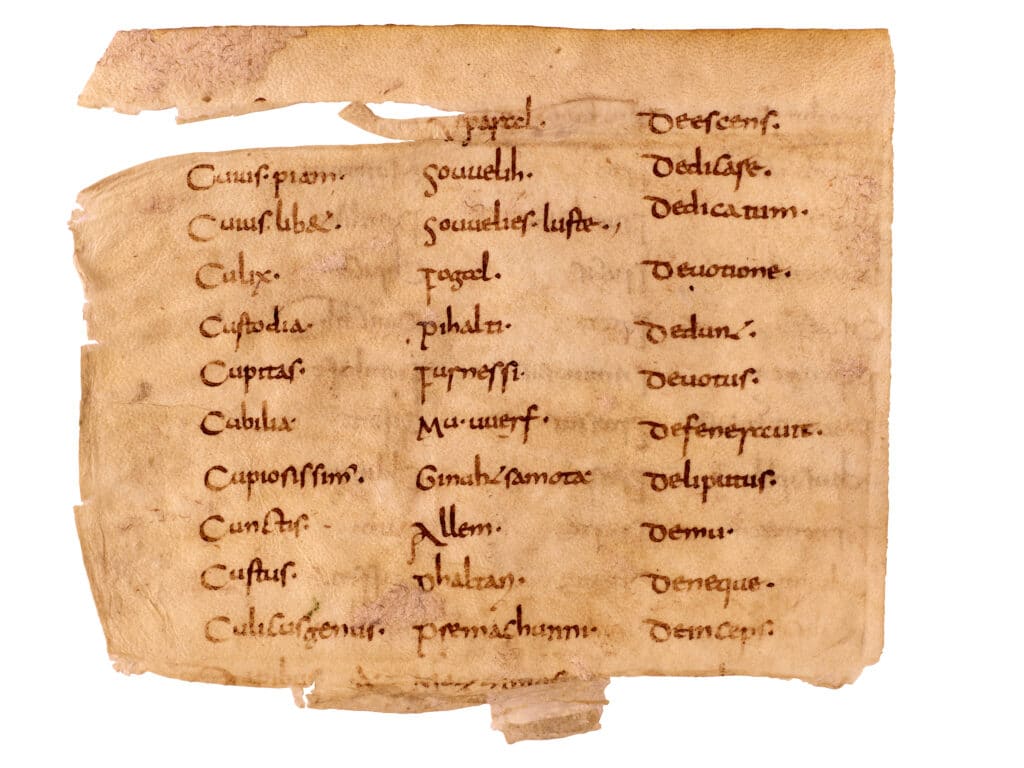 Deescens.
Cuius.piam. souuelih. Dedicase.
Cuius.lib&. souuelies.lufte. Dedicatum.
Culix. fogal. Deuotione.
Custodia. pihalti. Dedun&.
Cupitas. furnessi. Deuotus.
Cubilia Mu.uuerf. Defenerauit.
Cupiosissim. Ginuhtsamota Deliputus.
Cunctis. Allem. Demu.
Custus. phaltan. Deneque.
Culicusgenus. premachunni. Deinceps.